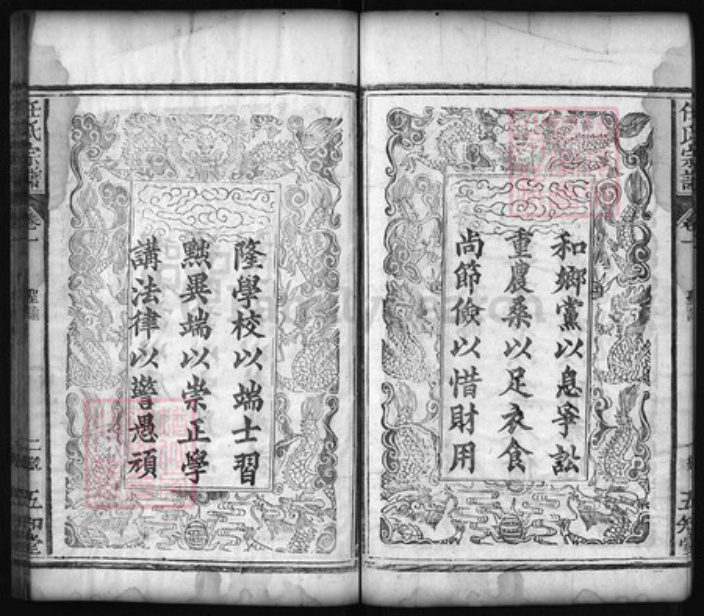 和鄉黨以息爭訟
重農桑以足衣食
尚節儉以惜財用
隆學校以端士習
黙異端以崇正學
講法律以警愚頑
任氏宗譜
卷一
聖諭
二
五知堂